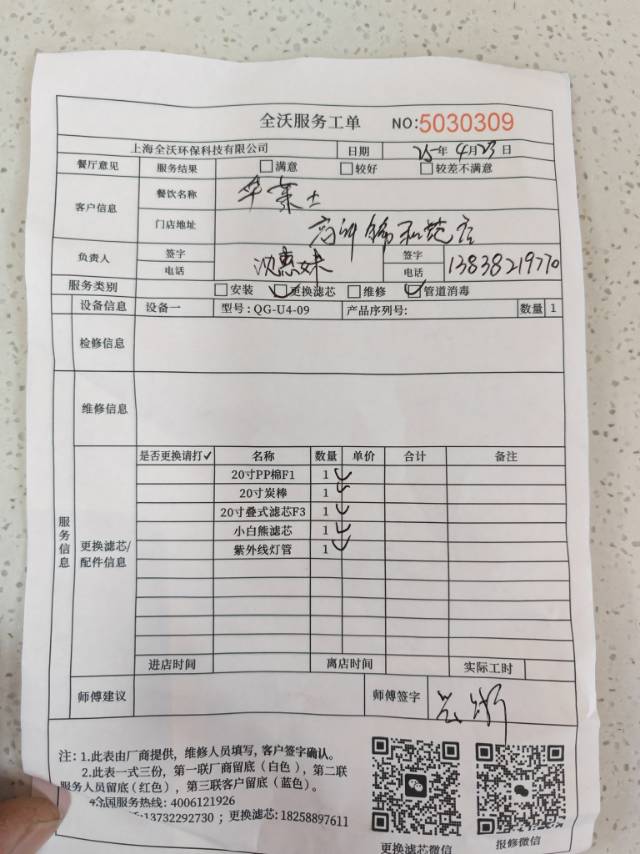 全沃服务工单 NO:5030309
上海全沃环保科技有限公司 日期 25年4月23日
餐厅意见 服务结果 满意 较好 较差不满意
客户信息 餐饮名称 华莱士
门店地址
负责人 签字 签字
电话 电话 13838219770
服务类别 安装 更换滤芯 维修 管道消毒
设备信息 设备一 型号: QG-U4-09 产品序列号: 数量 1
检修信息
维修信息
服务信息
更换滤芯/配件信息
是否更换请打✓ 名称 数量 单价 合计 备注
20寸PP棉F1 1
20寸炭棒 1
20寸叠式滤芯F3 1
小白熊滤芯 1
紫外线灯管 1
进店时间 离店时间 实际工时
师傅建议 师傅签字
注: 1.此表由厂商提供, 维修人员填写, 客户签字确认。
2.此表一式三份, 第一联厂商留底(白色), 第二联
服务人员留底(红色), 第三联客户留底(蓝色)。
全国服务热线: 4006121926
13732292730 ; 更换滤芯: 18258897611
更换滤芯微信 报修微信